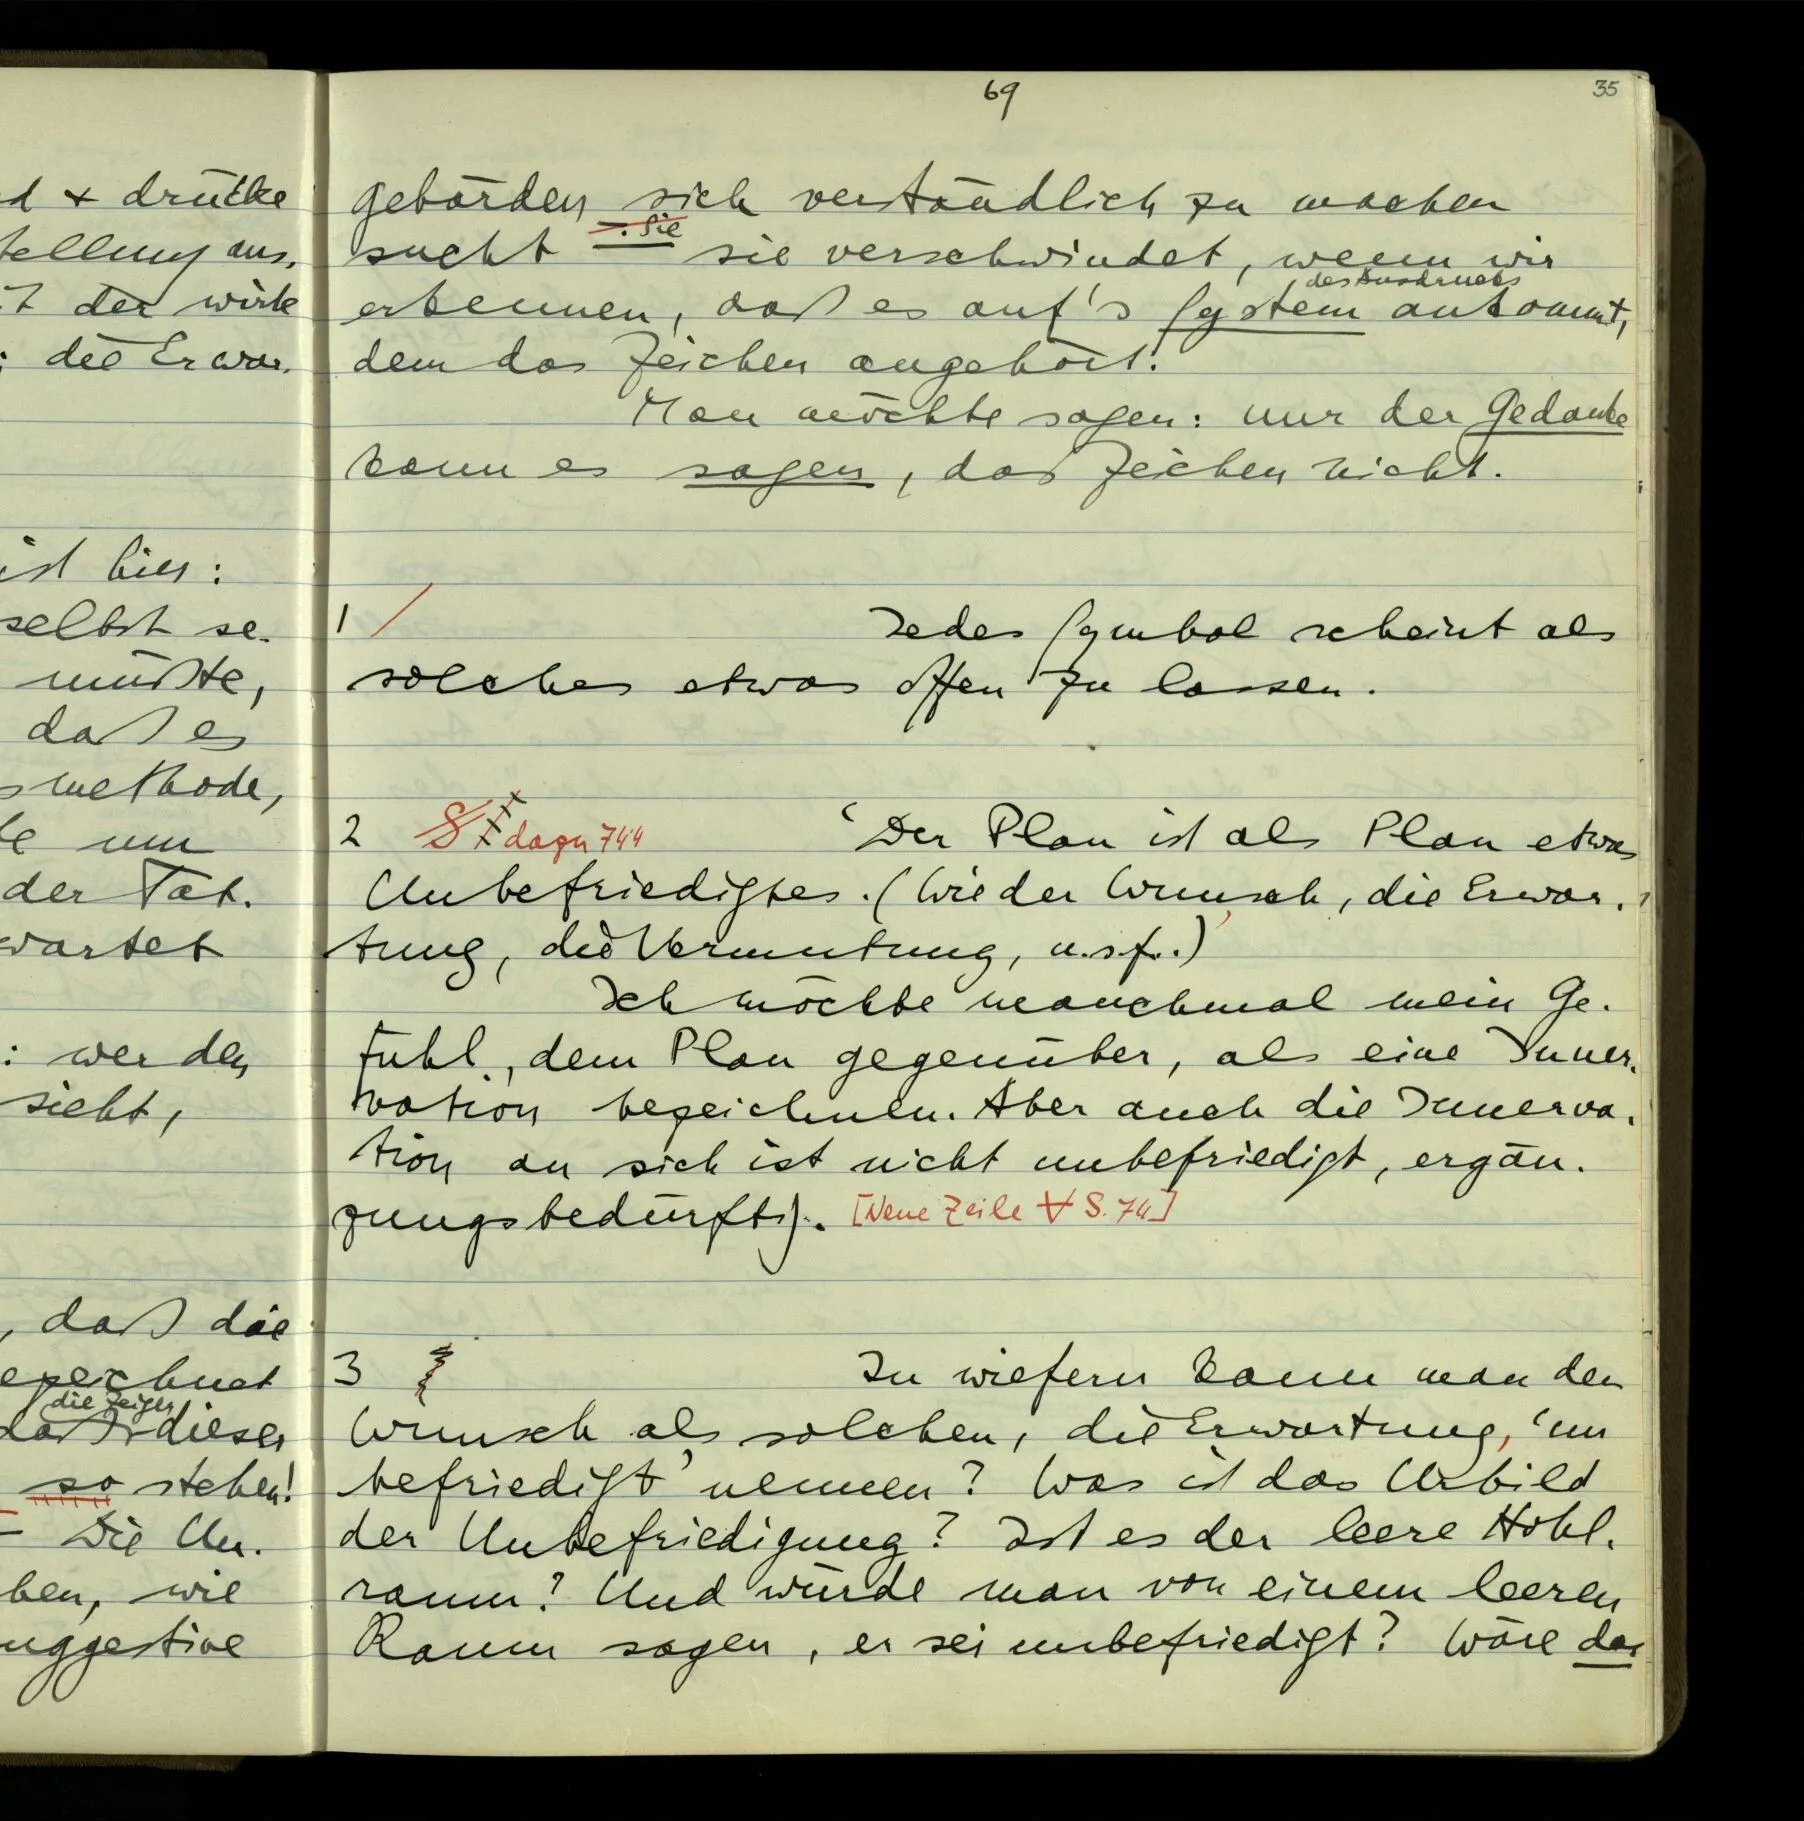 d + drücke
tellung aus,
t der wirk
: die Erwar-
ist hier:
selbst se-
müßte,
daß es
smethode,
te um
der Tat.
wartet
: wer den
sieht,
, daß die
ezeichnet
die Zeiger
daß dieser
so stehen!
– Die Un-
ben, wie
uggestive
69
35
gebärden sich verständlich zu machen
. Sie
sucht – sie verschwindet, wenn wir
des Ausdrucks
erkennen, daß es auf's System ankommt,
dem das Zeichen angehört.
Man möchte sagen: nur der Gedanke
kann es sagen, das Zeichen nicht.
1 / Jedes Symbol scheint als
solches etwas offen zu lassen.
2 S dazu 74 4 'Der Plan ist als Plan etwas
Unbefriedigtes. (Wie der Wunsch, die Erwar-
tung, die Vermutung, u.s.f..)'
Ich möchte manchmal mein Ge-
fühl, dem Plan gegenüber, als eine Inner-
vation bezeichnen. Aber auch die Innerva-
tion an sich ist nicht unbefriedigt, ergän-
zungsbedürftig. [Neue Zeile ∀ S. 74]
3 In wiefern kann man den
Wunsch als solchen, die Erwartung, 'un
befriedigt' nennen? Was ist das Urbild
der Unbefriedigung? Ist es der leere Hohl-
raum? Und würde man von einem leeren
Raum sagen, er sei unbefriedigt? Wäre das